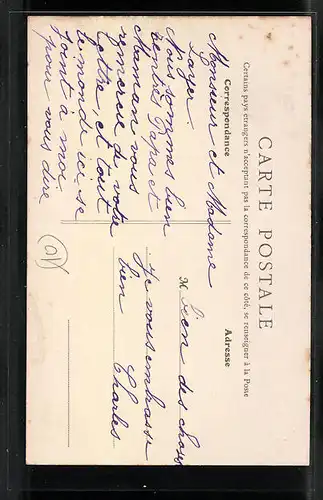 CARTE POSTALE
Certains pays étrangers n'acceptant pas la correspondance de ce côté, se renseigner à la Poste
Correspondance
Adresse
Monsieur et Madame
Layer
Nous sommes bien
rentrés Papa et
Maman vous
remercie de votre
lettre, et tout
le monde ici se
joint a moi
pour vous dire
M bien des choses
Je vous embrasse
bien
Charles